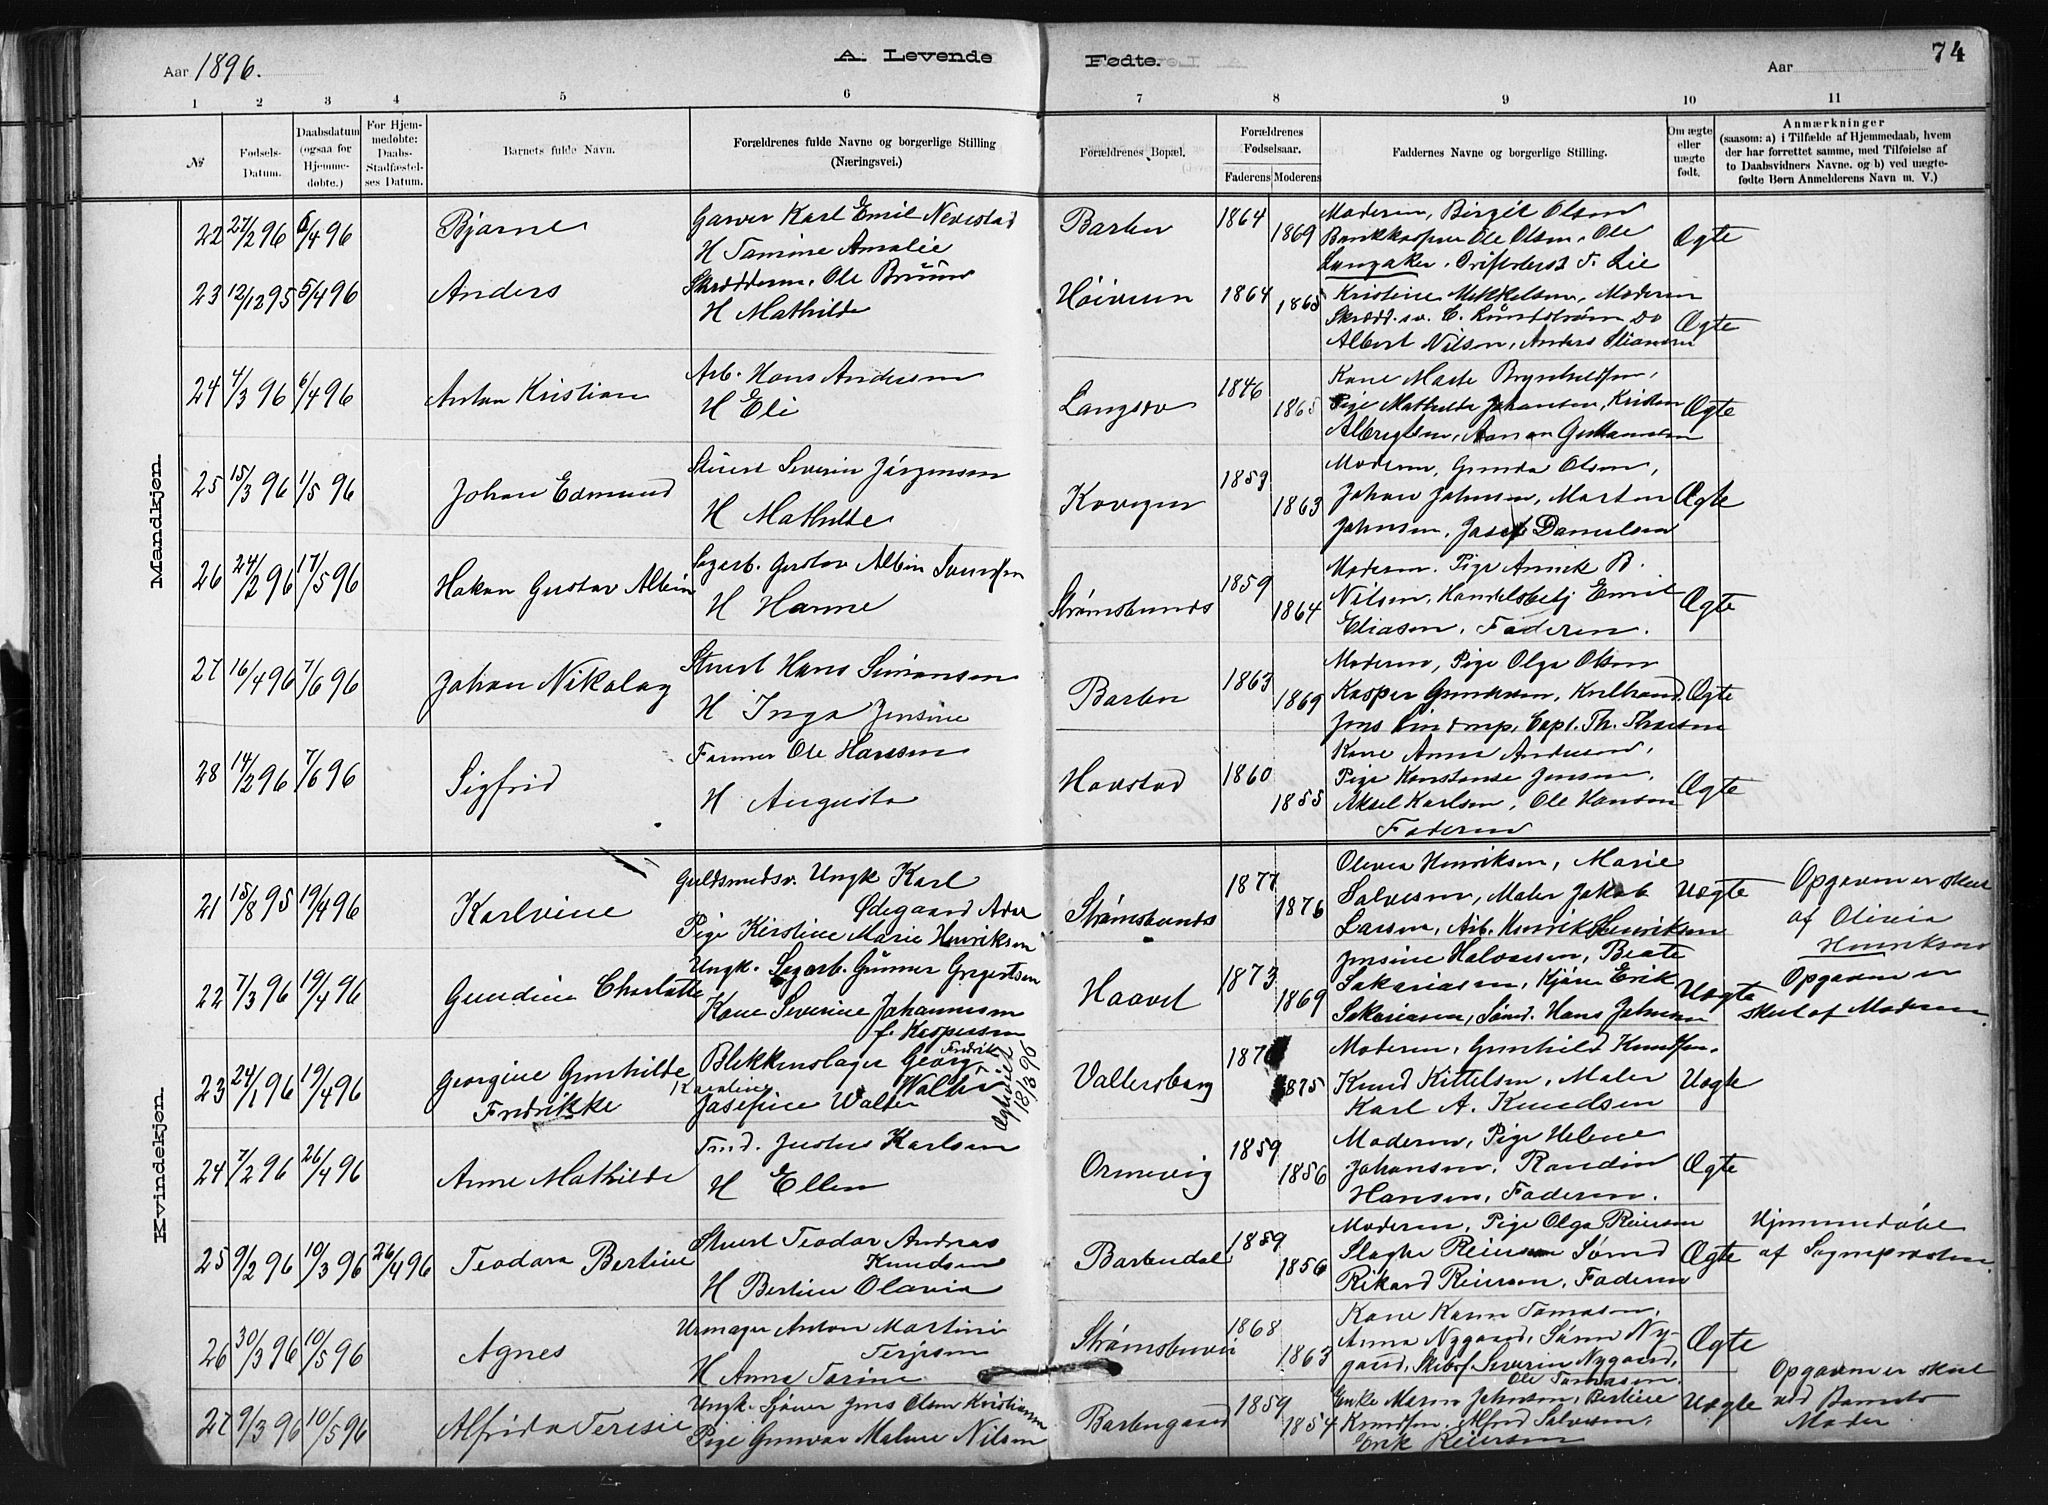 Aar 1896.
A. Levende Fødte.
Aar
74
1 2 3 4 5 6 7 8 9 10 11
№
Fødsels-Datum.
Daabsdatum (ogsaa for Hjemmedøbte.)
For Hjemmedøbte: Daabs-Stadfæstelses Datum.
Barnets fulde Navn.
Forældrenes fulde Navne og borgerlige Stilling (Næringsvei.)
Forældrenes Bopæl.
Forældrenes Fødselsaar.
Faderens Moderens
Faddernes Navne og borgerlige Stilling.
Om ægte eller uægte født.
Anmærkninger
(saasom: a) i Tilfælde af Hjemmedaab, hvem der har forrettet samme, med Tilføielse af to Daabsvidners Navne. og b) ved uægtefødte Børn Anmelderens Navn m. V.)
Mandkjøn.
22 27/2 96 6/4 96 Bjarne
Garver Karl Emil Nevestad
H Tomine Amalie
Barbu 1864 1869
Moderen, Birgit Olsen
Ole Olsen, Ole
Langaker, T. Lie
Ægte
23 12/12 95 5/4 96 Anders
Skrædderm. Ole Bruun
H Mathilde
1864 1865
Kristine Mikkelsen, Moderen
Skrædd.sv. C. Do
Albert Nilsen, Anders
Ægte
24 4/3 96 6/4 96 Anton Kristian
Arb. Hans Andersen
H Eli
Langsæv 1846 1865
Kone Marte Brynhildsen,
Pige Mathilde Johansen, Kristen
Ægte
25 15/3 96 1/5 96 Johan Edmund
Stuert Severin Jørgensen
H Mathilde
1859 1863
Moderen, Gunda Olsen,
Johan Johnsen, Morten
Johnsen, Josef Danielsen
Ægte
26 24/2 96 17/5 96 Hakon Gustav Albin
Sagarb. Gustav Albin Svendsen
H Hanne
Strømsbunds 1859 1864
Moderen. Pige Annik B.
Nilsen, Handelsbetj Emil
Eliasen, Faderen.
Ægte
27 16/4 96 7/6 96 Johan Nikolay
Stuert Hans Simonsen
H Inga Jensine
Barbu 1863 1869
Moderen, Pige Olga Olsen
Kasper Gundersen,
Jens Lindtrup, Capt. Th.
Ægte
28 14/2 96 7/6 96 Sigfrid
Farmer Ole Hansen
H Augusta
Havstad 1860 1855
Kone Anna Andersen,
Pige Konstanse Jensen,
Aksel Karlsen, Ole Hansen
Faderen
Ægte
Kvindekjøn.
21 15/8 95 19/4 96 Karlvine
Guldsmedsv. Ungk Karl
Ødegaard
Pige Kirstine Marie Henriksen
Strømsbunds 1877 1876
Olivia Henriksen, Marie
Salvesen, Maler Jakob
Larsen, Arb. Henrik Henriksen
Uægte
Opgaven er skeet
af Olivia
Henriksen
22 7/3 96 19/4 96 Gundine Charlotte
Ungk. Sagarb. Gunner Gregertsen
Kone Severine Johannesen
f. Kaspersen
Haavet 1873 1869
Jensine Halvorsen, Beate
Sakariasen, Kjører Erik
Sakariasen, Smed. Hans Johnsen
Uægte
Opgaven er
skeet af Moderen.
23 24/1 96 19/4 96 Georgine Gunhilde
Fredrikke
Blikkenslager Georg
Fredrik
Walter
Karoline
Josefine Walter
Ægteviet
18/3 96
Vallersberg 1875
Moderen, Gunhild Knudsen.
Knud Kittelsen, Maler
Karl A. Knudsen
Uægte
24 7/2 96 26/4 96 Anne Mathilde
Justus Karlsen
H Ellen
Ormevig 1859 1856
Moderen, Pige Helene
Johansen, Roudin
Hansen, Faderen.
Ægte
25 9/2 96 10/3 96 26/4 96 Teodora Bertine
Stuert Teodor Andreas
Knudsen
H Bertine Olavia
Barbudal 1859 1856
Moderen, Pige Olga Reiersen
Slagter Reiersen Smed
Rikard Reiersen, Faderen
Ægte
Hjemmedøbt
af Sognepræsten.
26 30/3 96 10/5 96 Agnes
Urmager Anton Martini
Terjesen
H Anna Torine
1868 1863
Kone Karen Tomasen,
Anna Nygaard, Søren Nygaard, Severin Nygaard,
Ole Tomasen.
Ægte
27 9/3 96 10/5 96 Alfrida Teresie
Ungk. Fører Jens Olsen Kristiansen
Pige Gunvor Malene Nilsen
Barbugaard 1859 1854
Enke Maren Johnsen, Bertine
Knudsen, Alfred Salvesen,
Erik Reiersen
Uægte
Opgaven er skeet
ved Barnets
Moder